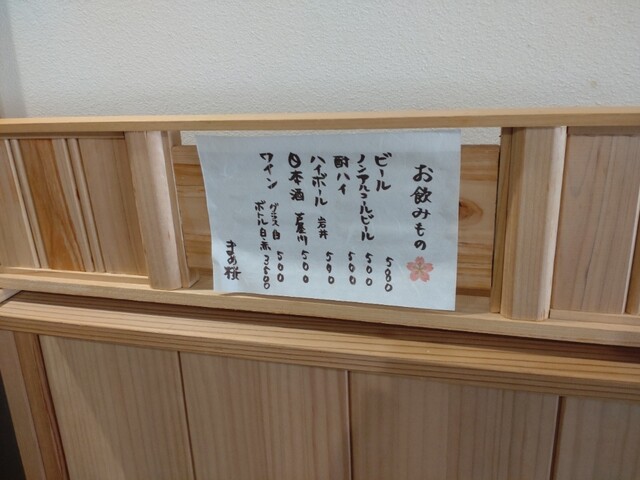 お飲みもの
ビール 500
ノンアルコールビール 500
酎ハイ 500
ハイボール 岩井 500
日本酒 芦屋川 500
ワイン グラス白 500
ボトル白・赤 3500
まあ桜